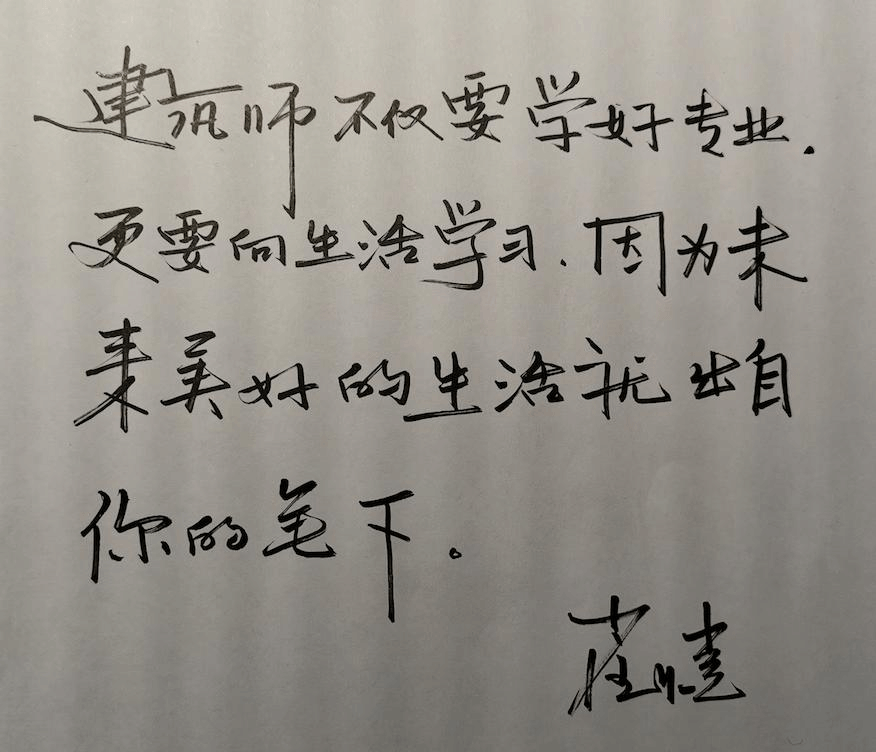 建筑师不仅要学好专业.
更要向生活学习.因为未
来美好的生活就出自
你的笔下。
崔愷